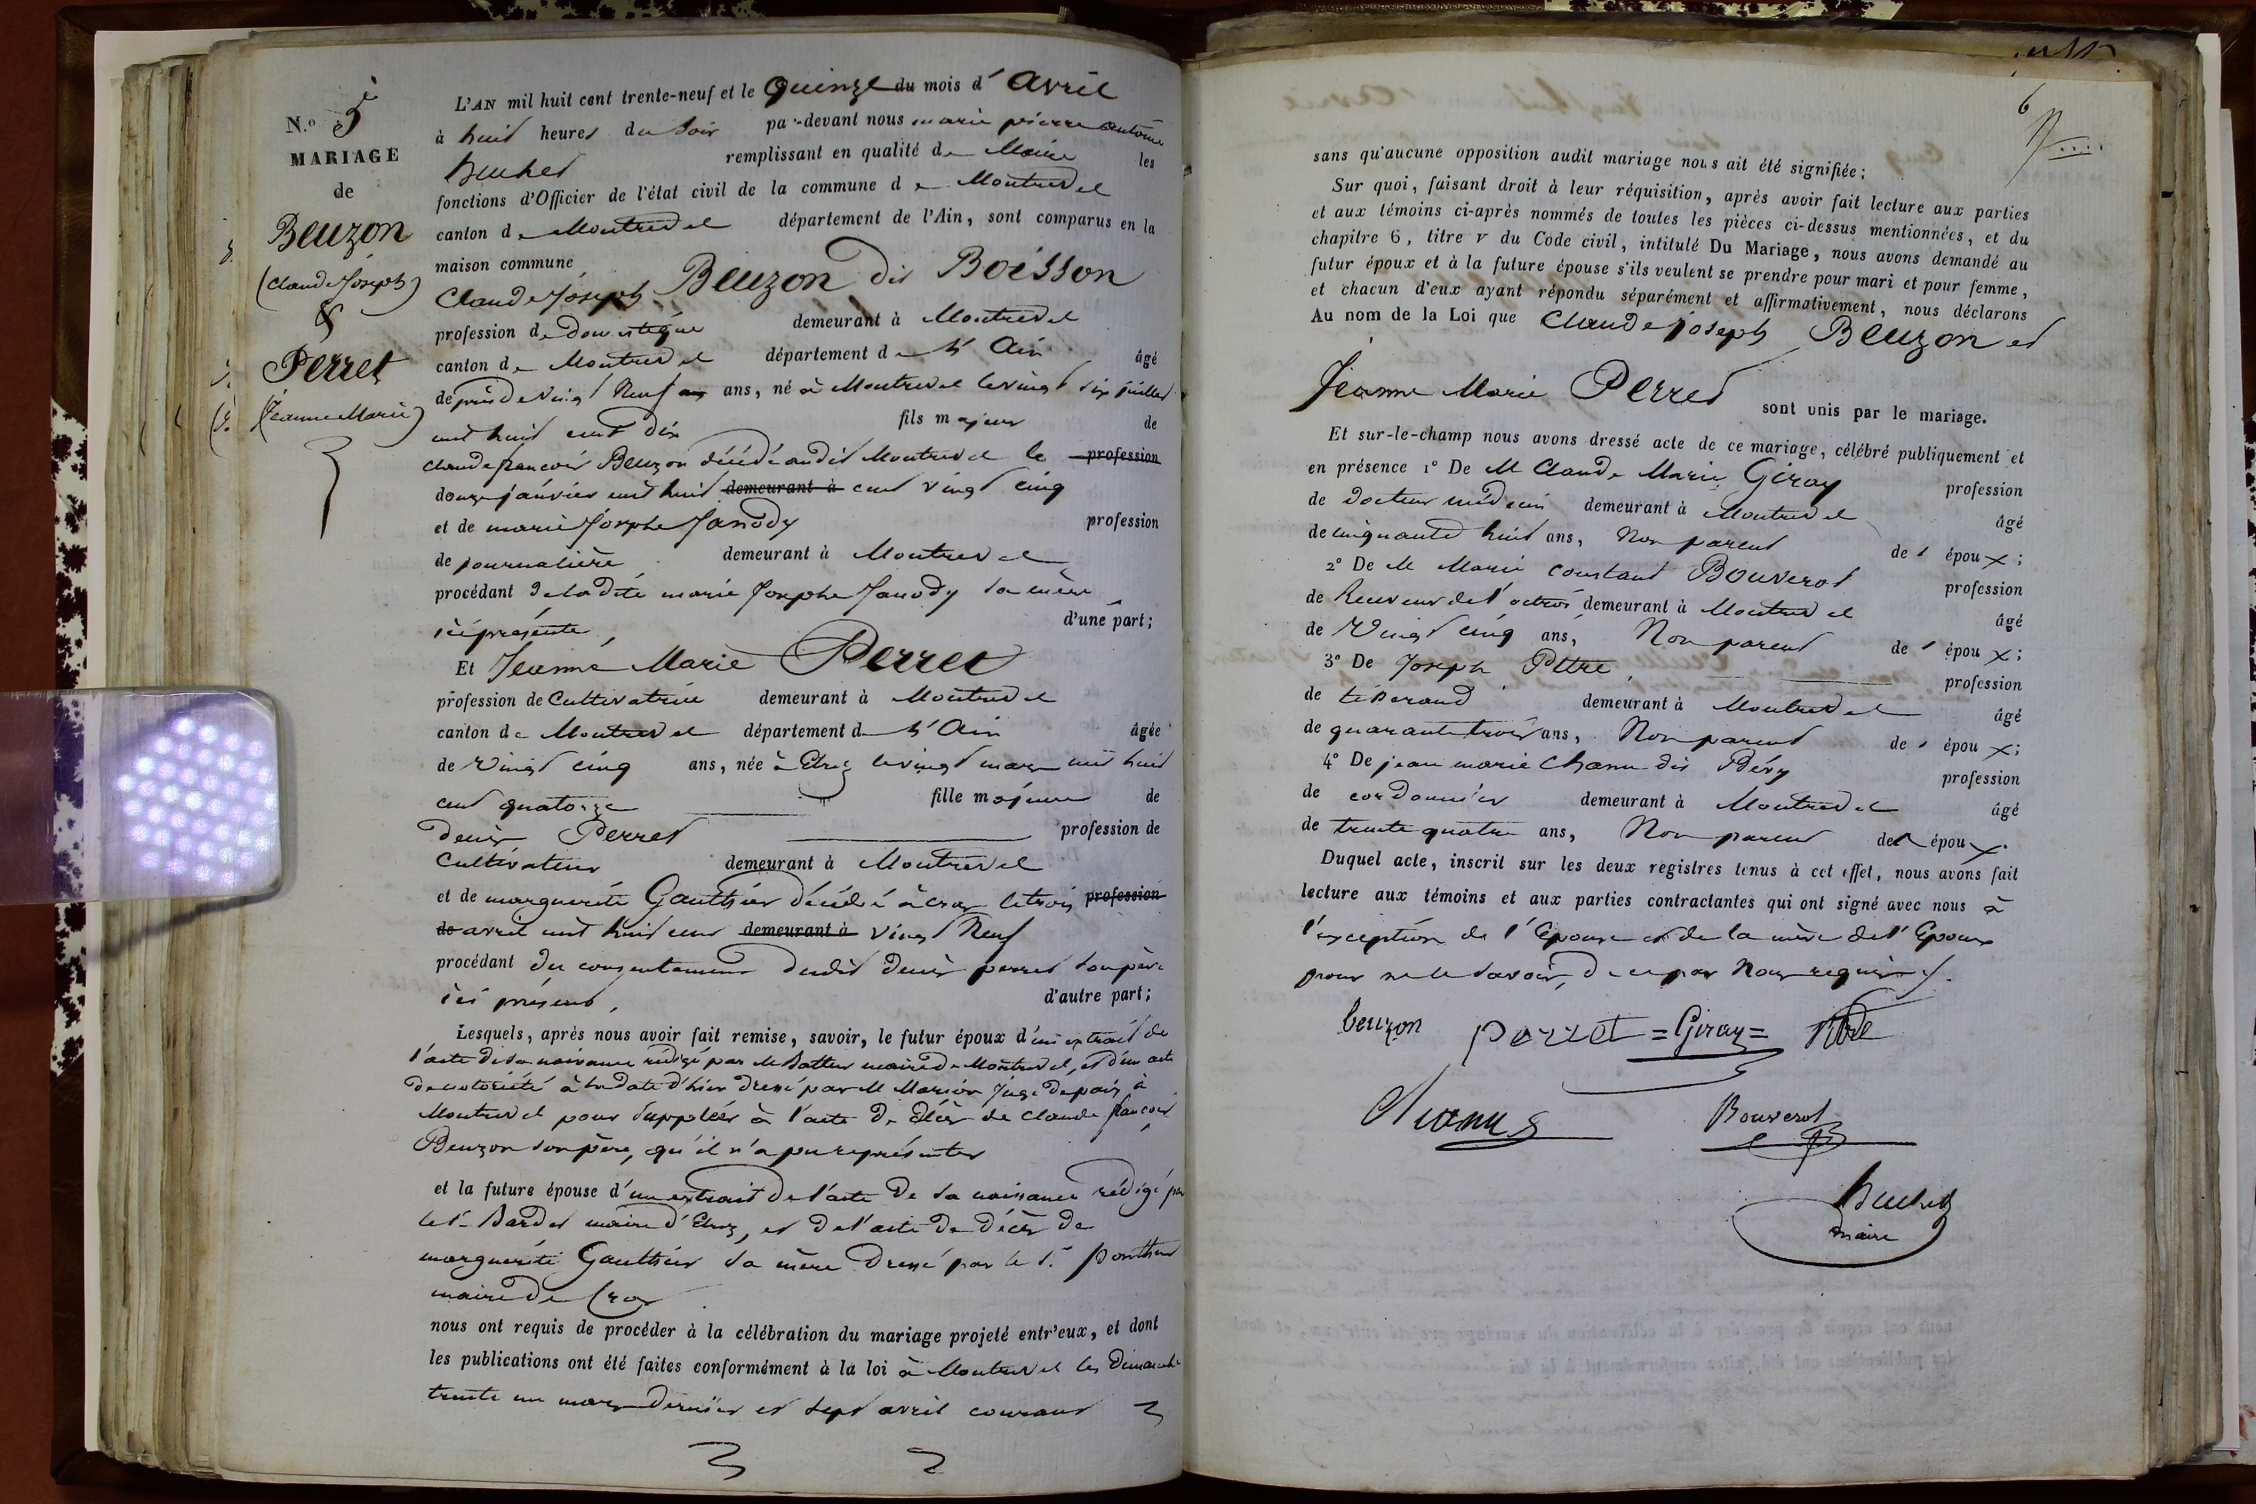 N.º 5
MARIAGE
de
Beuzon
(Claude Joseph)
&
Perret
(Jeanne Marie)
L'AN mil huit cent trente-neuf et le Quinze du mois d' Avril
à huit heures du soir par-devant nous marie pierre antoine
Buchet remplissant en qualité de Maire les
fonctions d'Officier de l'état civil de la commune de Montrevel
canton de Montrevel département de l'Ain, sont comparus en la
maison commune
Claude Joseph Beuzon dit Boisson
profession de domestique demeurant à Montrevel
canton de Montrevel département de l'Ain âgé
de près de vingt Neuf ans ans, né à Montrevel le vingt six juillet
mil huit cent dix fils majeur de
claude françois Beuzon décédé audit Montrevel le profession
douze janvier mil huit demeurant à cent vingt cinq
et de marie Josephe Janody profession
de journalière demeurant à Montrevel
procédant de ladite marie Josephe Janody sa mère
ici présente, d'une part;
Et Jeanne Marie Perret
profession de Cultivatrice demeurant à Montrevel
canton de Montrevel département de l'Ain âgée
de vingt cinq ans, née à Etrez le vingt mars mil huit
cent quatorze fille majeure de
denis Perret profession de
Cultivateur demeurant à Montrevel
et de marguerite Gauthier décédée à cras le trois profession
de avril mil huit cent demeurant à vingt Neuf
procédant du consentement dudit denis perret son père
ici présent, d'autre part;
Lesquels, après nous avoir fait remise, savoir, le futur époux d'un extrait de
l'acte de sa naissance rédigé par M maire de Montrevel, et d'un acte
de notoriété à la date d'hier dressé par M Marion Juge de paix à
Montrevel pour suppléer à l'acte de décès de claude françois
Beuzon son père, qu'il n'a pu représenter
et la future épouse d'un extrait de l'acte de sa naissance rédigé par
le Sr Bardet maire d'Etrez, et de l'acte de décès de
marguerite Gauthier sa mère dressé par le Sr Ponthus
maire de Cras
nous ont requis de procéder à la célébration du mariage projeté entr'eux, et dont
les publications ont été faites conformément à la loi à Montrevel les Dimanche
trente un mars dernier et sept avril courant
6
sans qu'aucune opposition audit mariage nous ait été signifiée;
Sur quoi, faisant droit à leur réquisition, après avoir fait lecture aux parties
et aux témoins ci-après nommés de toutes les pièces ci-dessus mentionnées, et du
chapitre 6, titre v du Code civil, intitulé Du Mariage, nous avons demandé au
futur époux et à la future épouse s'ils veulent se prendre pour mari et pour femme,
et chacun d'eux ayant répondu séparément et affirmativement, nous déclarons
Au nom de la Loi que Claude joseph Beuzon et
Jeanne Marie Perret sont unis par le mariage.
Et sur-le-champ nous avons dressé acte de ce mariage, célébré publiquement et
en présence 1º De M Claude Marie Giray profession
de docteur médecin demeurant à Montrevel âgé
de cinquante huit ans, Non parent de l'époux;
2º De M Marie constant Bouverot profession
de Receveur de l'octroi demeurant à Montrevel âgé
de Vingt cinq ans, Non parent de l'époux;
3º De Joseph Pitre, profession
de tisserand demeurant à Montrevel âgé
de quarante trois ans, Non parent de l'époux;
4º De jean marie Chanu dit Béry profession
de cordonnier demeurant à Montrevel âgé
de trente quatre ans, Non parent de l'époux.
Duquel acte, inscrit sur les deux registres tenus à cet effet, nous avons fait
lecture aux témoins et aux parties contractantes qui ont signé avec nous à
l'exception de l'Epouse et de la mère de l'Epoux
pour ne le savoir, de ce par Nous requises.
beuzon perret =Giray=
Chanu Bouverot
Buchet
maire